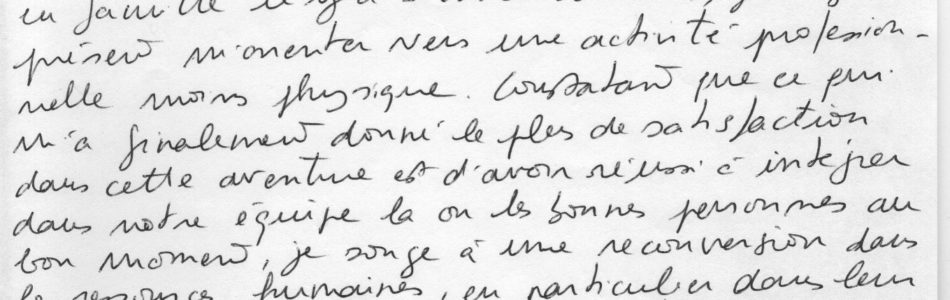 en famille
présent m'orienter vers une activité profession-
nelle moins physique. Constatant que ce qui
m'a finalement donné le plus de satisfaction
dans cette aventure est d'avoir réussi à intégrer
dans notre équipe la ou les bonnes personnes au
bon moment, je songe à une reconversion dans
les ressources humaines, en particulier dans leur